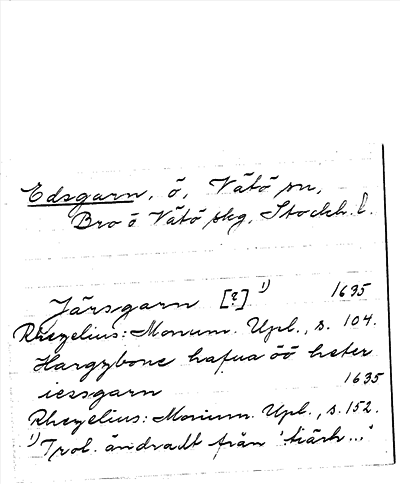 Edsgarn, ö, Vätö sn,
Bro o Vätö skg, Stockh. l.
Järsgarn [?] 1) 1635
Rhezelius: Monum. Upl., s. 104.
Hargzbone hafua öö heter
iessgarn 1635
Rhezelius: Monum. Upl., s. 152.
1) Trol. ändradt från